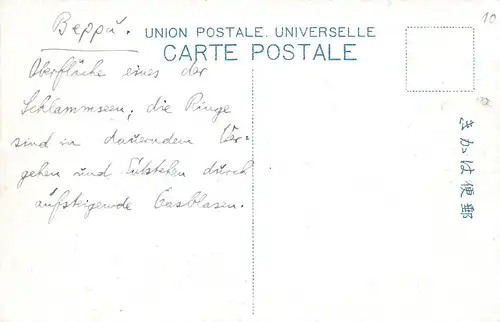 Beppu.
UNION POSTALE UNIVERSELLE
CARTE POSTALE
10
Oberfläche eines der
Schlammseen; die Ringe
sind in dauerndem Ver-
gehen und Entstehen durch
aufsteigende Gasblasen.
きかは便郵